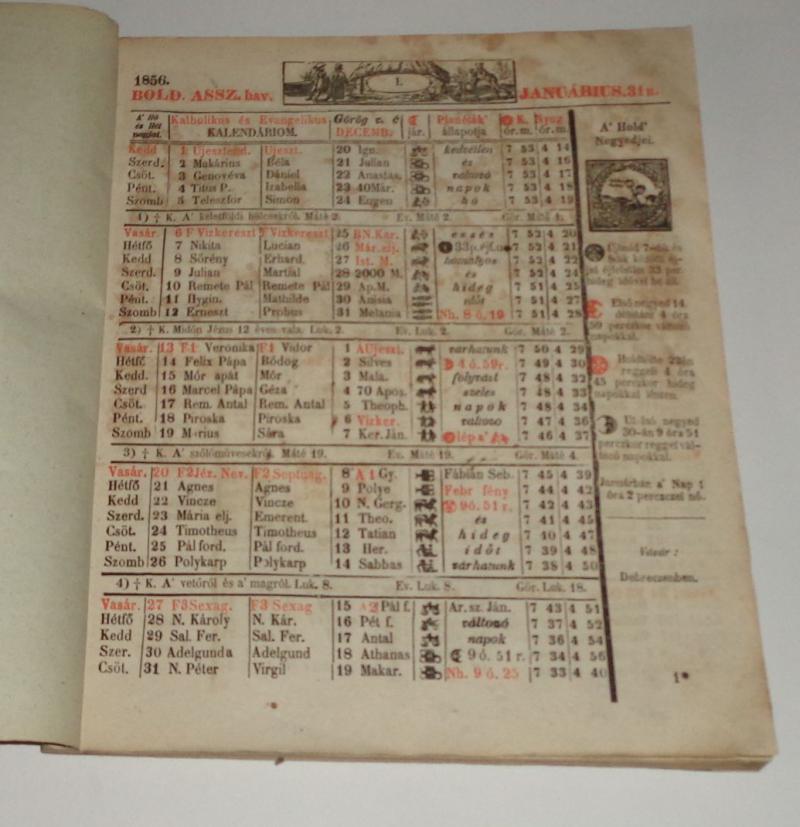 1856.
I.
BOLD. ASSZ. hav.
JANUÁRIUS. 31 n.
A' Hó és Hét napjai.
Katholikus és Evangelikus
KALENDÁRIOM.
Görög r. é
DECEMB.
jár.
Planéták'
állapotja
K. Nyug
ór.m. ór.m.
Kedd 1 Ujesztend. Ujeszt. 20 Ign. kedvetlen 7 53 4 14
Szerd. 2 Makárius Béla 21 Julian és 7 53 4 16
Csöt. 3 Genovéva Dániel 22 Anastas. valtozó 7 53 4 17
Pént. 4 Titus P. Izabella 23 40Már. napok 7 53 4 18
Szomb 5 Teleszfor Simon 24 Eugen hó 7 53 4 19
1) † K. A' keletföldi bölcsekről. Máté 2. Ev. Máté 2. Gör. Máté 1.
Vasár. 6 F Vizkereszt F Vizkereszt 25 BN. Kar. essős 7 52 4 20
Hétfő 7 Nikita Lucian 26 Már. elj. 7 52 4 21
Kedd 8 Sörény Erhard. 27 Ist. M. homályos 7 52 4 22
Szerd. 9 Julian Martial 28 2000 M. és 7 52 4 24
Csöt. 10 Remete Pál Remete Pál 29 Ap.M. hideg 7 51 4 25
Pént. 11 Hygin. Mathilde 30 Anisia időt 7 51 4 27
Szomb 12 Erneszt Probus 31 Melania Nh. 8 ó. 19 7 51 4 28
2) † K. Midőn Jézus 12 éves vala. Luk. 2. Ev. Luk. 2. Gör. Máté 2.
Vasár. 13 F1 Veronika F1 Vidor 1 AUjeszt. várhatunk 7 50 4 29
Hétfő 14 Felix Pápa Bódog 2 Silves 4 ó. 59r. 7 49 4 30
Kedd. 15 Mór apát Mór 3 Mala. folyvást 7 48 4 32
Szerd 16 Marcel Pápa Géza 4 70 Apos. szeles 7 48 4 33
Csöt. 17 Rem. Antal Rem. Antal 5 Theoph. napok 7 48 4 34
Pént. 18 Piroska Piroska 6 Vizker. valtozo 7 47 4 36
Szomb 19 Márius Sára 7 Ker. Ján. lép a' 7 46 4 37
3) † K. A' szőlőművesekről. Máté 19. Ev. Máté 19. Gör. Máté 4.
Vasár. 20 F2Jéz. Nev. F2 Septuag. 8 A 1 Gy. Fábián Seb. 7 45 4 39
Hétfő 21 Agnes Agnes 9 Polye Febr fény 7 44 4 42
Kedd 22 Vincze Vincze 10 N. Gerg. 9 ó. 51 r. 7 42 4 43
Szerd. 23 Mária elj. Emerent. 11 Theo. és 7 41 4 45
Csöt. 24 Timotheus Timotheus 12 Tatian hideg 7 40 4 47
Pént. 25 Pál ford. Pál ford. 13 Her. időt 7 39 4 48
Szomb 26 Polykarp Polykarp 14 Sabbas várhatunk 7 38 4 50
4) † K. A' vetőről és a' magról. Luk. 8. Ev. Luk. 8. Gör. Luk. 18.
Vasár. 27 F3Sexag. F3 Sexag 15 A2 Pál f. Ar. sz. Ján. 7 43 4 51
Hétfő 28 N. Károly N. Kár. 16 Pét f. változó 7 37 4 52
Kedd 29 Sal. Fer. Sal. Fer. 17 Antal napok 7 36 4 54
Szer. 30 Adelgunda Adelgund 18 Athanas 9 ó. 51 r. 7 34 4 56
Csöt. 31 N. Péter Virgil 19 Makar. Nh. 9 ó. 25 7 33 4 40
A' Hold'
Negyedjei.
Első negyed 14.
délután 4 óra
59 perczkor
napokkal.
Holdtölte 22én
reggeli 9 óra
45 perczkor hideg
napokkal
Utolsó negyed
30-án 9 óra 51
perczkor reggel vál-
tozó napokkal.
Januárban a' Nap 1
óra 2 perczczel nő.
Vásár:
Debreczenben.
1*